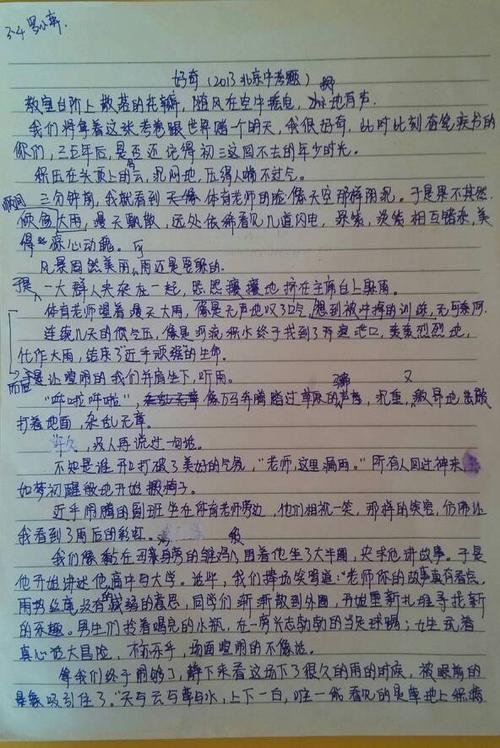 好奇（2013北京中考题）
教室台阶上散落的花瓣，随风在空中摇曳，地有声．
我们将拿着这张考卷跟世界赌个明天，我很好奇，此时此刻奋笔疾书的
你们，三五年后，是否还记得初三这回不去的年少时光。
积压在头顶上的云，沉闷地，压得人喘不过气。
三分钟前，我就看到天像体育老师的脸像天空那样阴沉。于是果不其然，
倾盆大雨，漫天飘散，远处依稀看见几道闪电，相互错杂，美
得惊心动魄。
风景固然美丽，雨还是要躲的．
于是一大群人夹杂在一起，熙熙攘攘地挤在主席台上躲雨。
体育老师望着漫天大雨，像是无声地叹了口气，想到被冲掉的训练，无可奈何．
连续几天的低气压，像是河流积水终于找到了开通地口，轰轰烈烈地，
化作大雨，结束了近乎顽强的生命．
于是让喧闹的我们并肩坐下，听雨。
“呼啦呼啦”，像万马奔腾踏过草原的声音，沉重，敲昂地
打着地面，杂乱无章．
许久，没人再说过一句话．
不知是谁开口打破了美好的气氛，“老师，这里漏雨。”所有人回过神来，
如梦初醒般地开始搬椅子．
近乎闹腾的副班坐在体育老师旁边，他们相视一笑，那样的笑容，仿佛让
我看到了雨后的彩虹．
我们像黏在母鸡身旁的雏鸡般围着他坐了大半圈，央求他讲故事．于是
他开始讲述他高中与大学．逃学，我们捧场笑道：“老师你的故事真有看头．
雨势丝毫没有减弱的意思，同学们渐渐散到外圈，开始重新扎堆寻找新
的乐趣．男生们拎着喝完的水瓶，在一旁斗志勃勃的当足球踢；女生玩着
真心话大冒险，不亦乐乎，场面喧闹的不像话．
等我们终于闹够了，静下来看这场下了很久的雨的时候，被眼前的
景象吸引住了．“天与云与草与水，上下一白，唯一能看见的是草地上